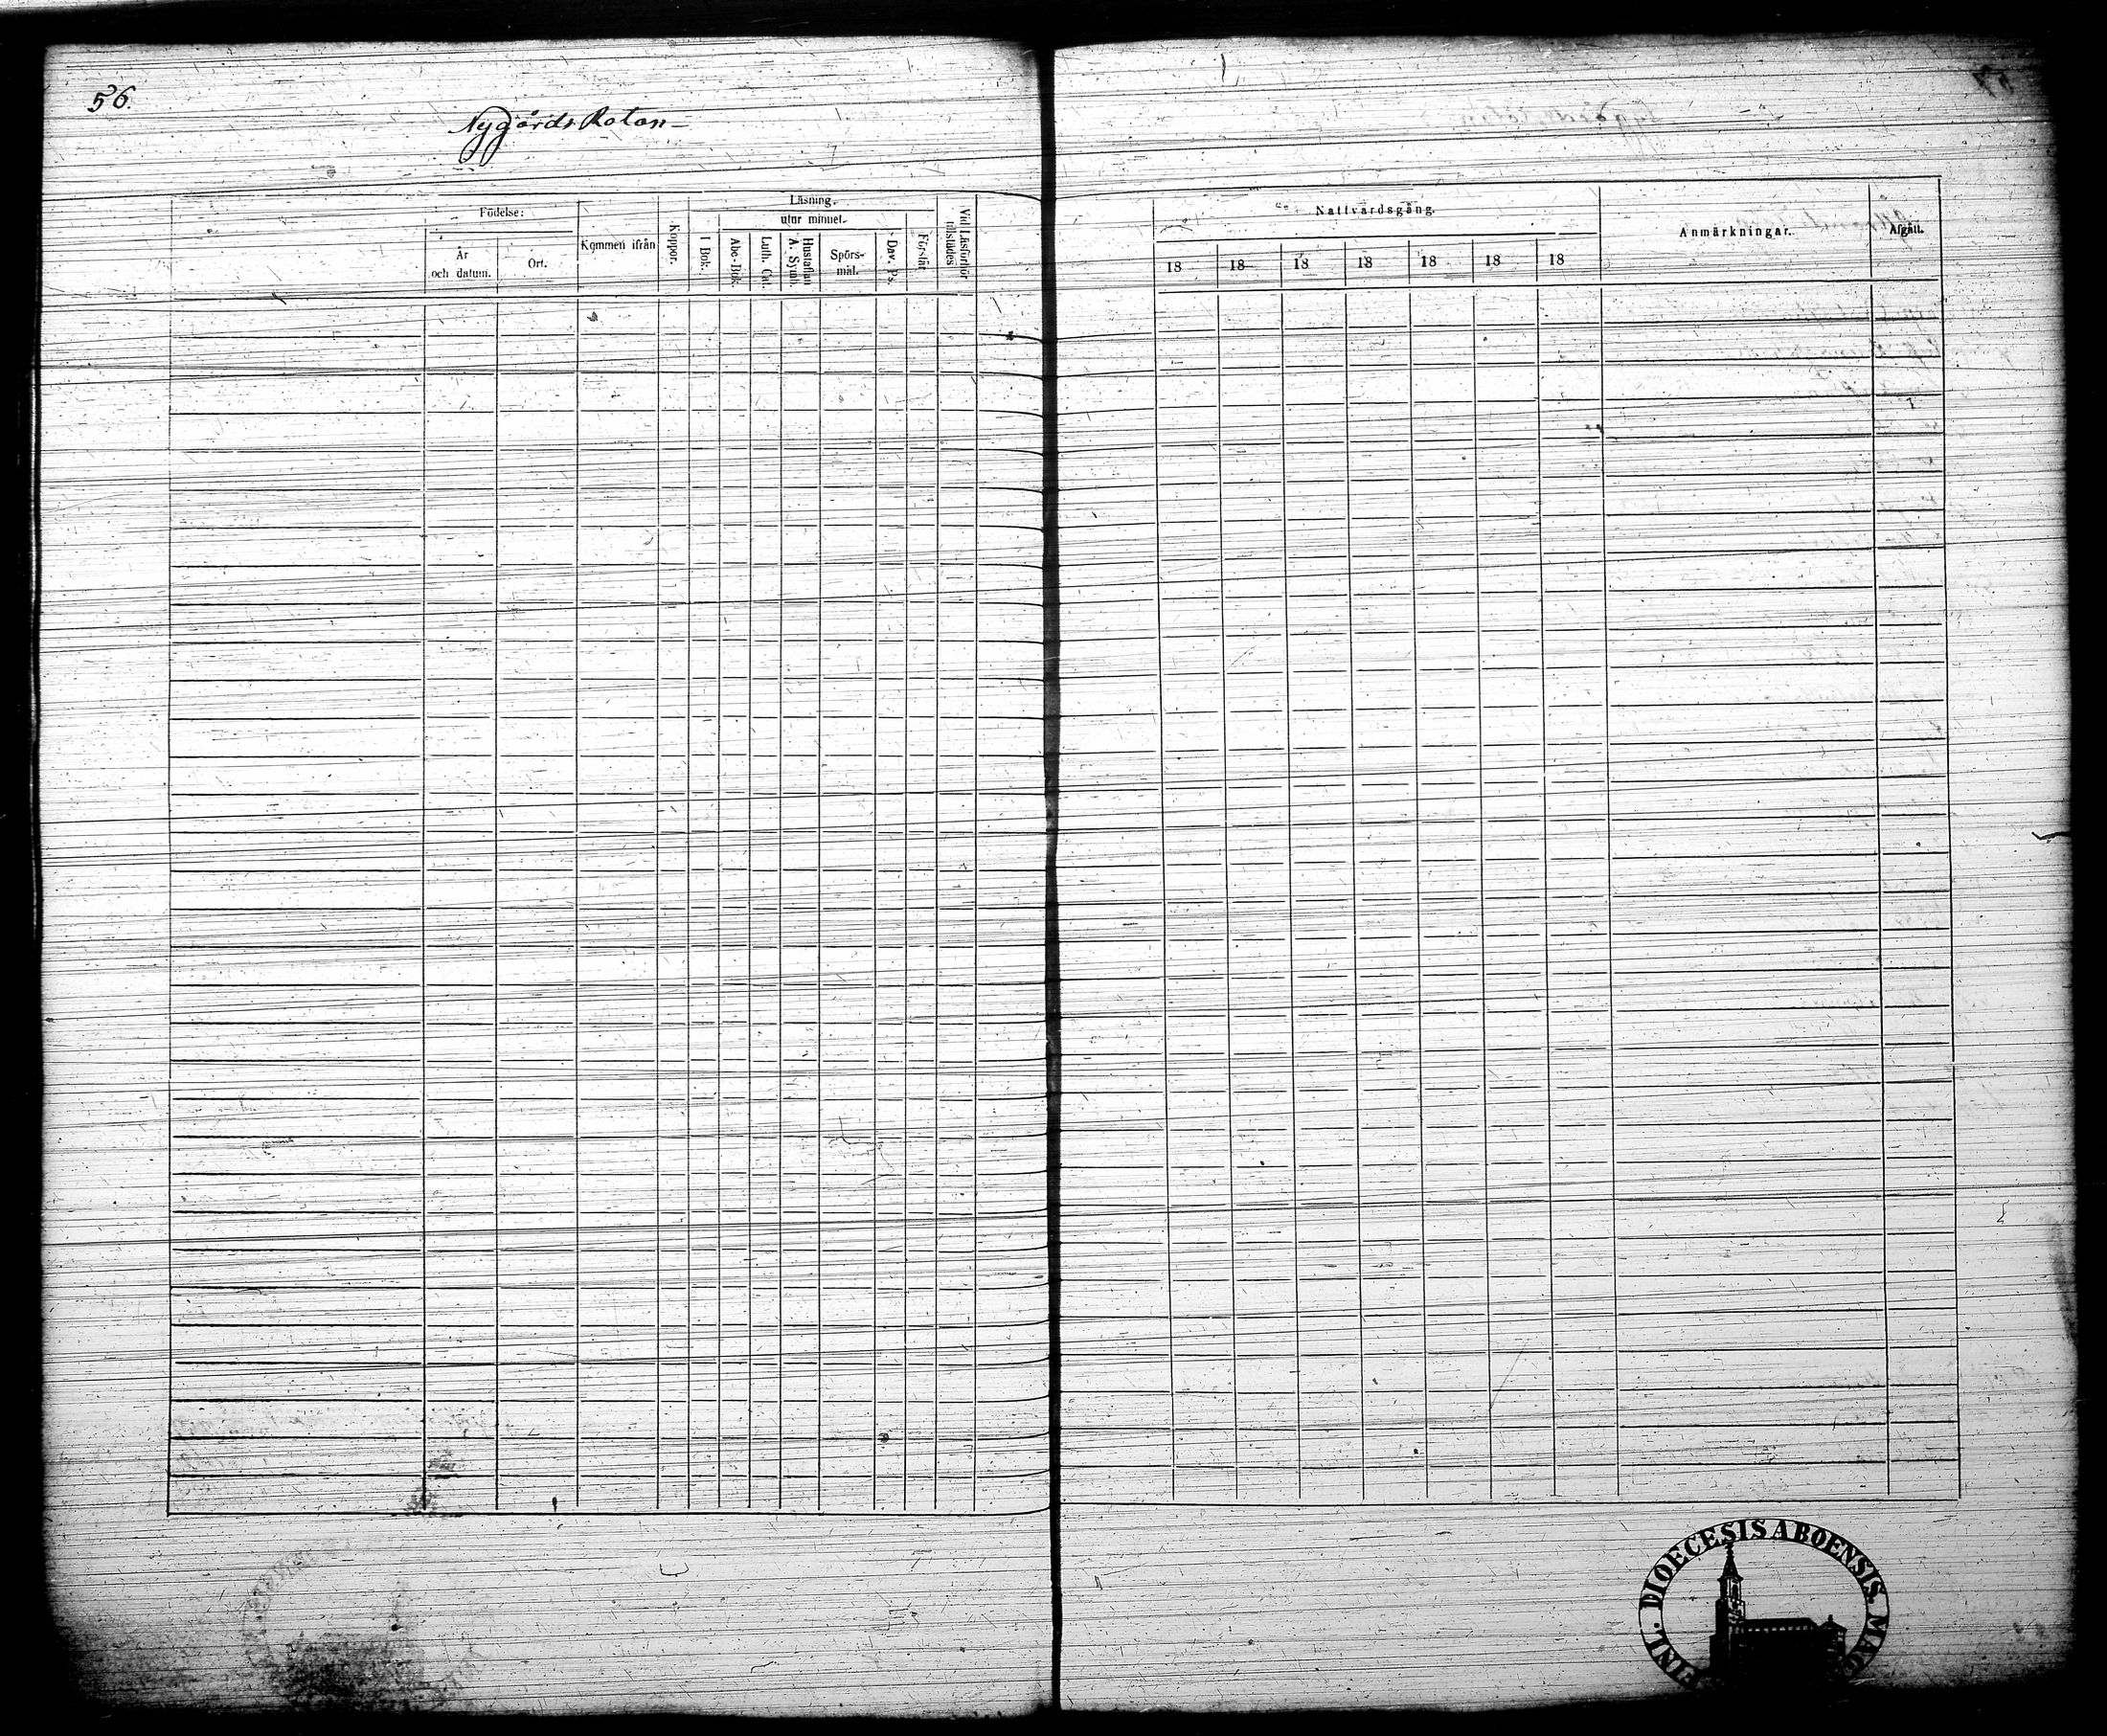 56.
Nygårds Rotan
Födelse:
År
och datum.
Ort.
Kommen ifrån
Koppor.
Läsning.
utur minnet.
I Bok.
Abc-Bok.
Luth. Cat.
Hustaflan
A. Symb.
Spörs-
mål.
Dav. Ps.
Förstår
Vid Läsförhör
tillstädes
Nattvardsgång.
18 18 18 18 18 18 18
Anmärkningar.
Afgått.
FINL. DIOECESIS ABOENSIS